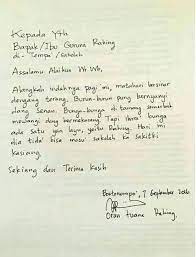 Kepada Yth
Bapak/Ibu Guruna Raking
di- Tempat/sekolah
Assalamu Alaikum Wr Wb,
Alangkah indahnya pagi ini, matahari bersinar
dengang terang. Burun-burun pung bernyanyi
dang Senam. Bunga-bunga di tamang semerbak
mewangi dang bermekarang Tapi ibarat bunga
ada satu yang layu, yaitu Raking. Hari ini
dia tida' bisa masu' sekolah ka sakitki
kasiang.
Sekiang dan Terima Kasih
7 September 2016
Oran tuana Raking.